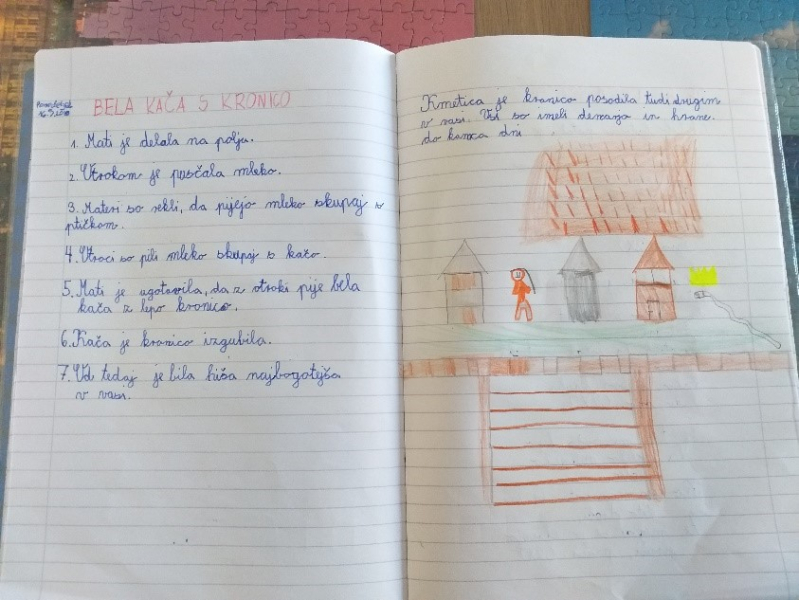 BELA KAČA S KRONICO
1. Mati je delala na polja.
2. Otrokom je puščala mleko.
3. Materi so rekli, da pijejo mleko skupaj s
ptičkom.
4. Otroci so pili mleko skupaj s kačo.
5. Mati je ugotovila, da z otroki pije bela
kača z lepo kronico.
6. Kača je kronico izgubila.
7. Od tedaj je bila hiša najbogatejša
v vasi.
Kmetica je kronico posodila tudi drugim
v vasi. Vsi so imeli denarja in hrane
do konca dni